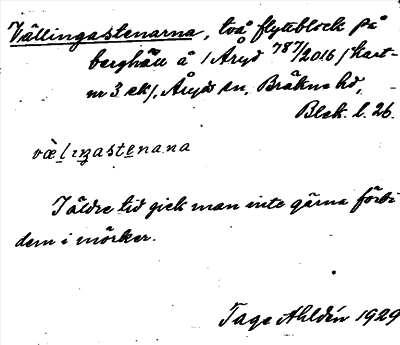 Vällingastenarna, två flyttblock på
berghäll å 1 Åryd 787/2016 (kart-
nr 3 ek), Åryds sn, Bräkne hd,
Blek. l. 26.
I äldre tid gick man inte gärna förbi
dem i mörker.
Tage Ahldén 1929